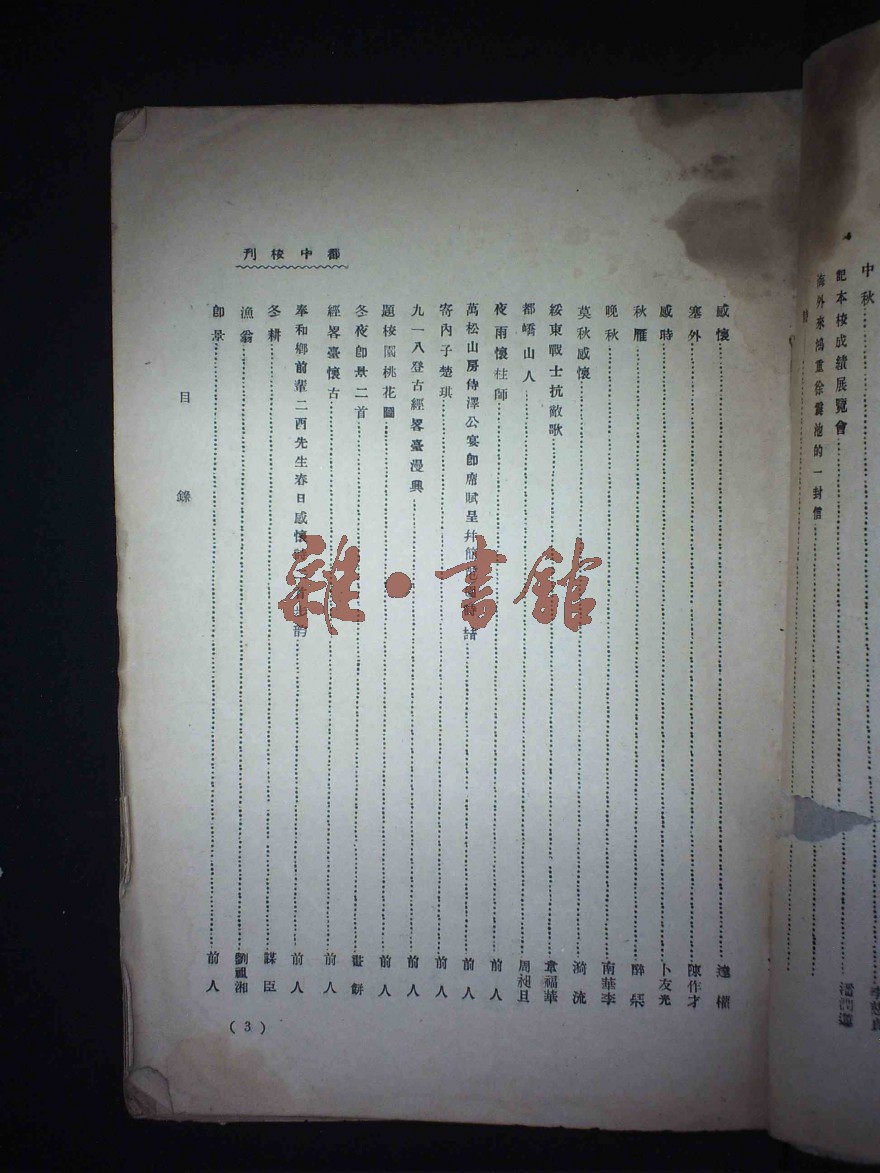 4
中秋
記本校成績展覽會
海外來鴻重徐震池的一封信
感懷 達權
塞外 陳作才
感時 卜友光
秋雁 醉柴
晚秋 南華李
莫秋感懷 漪流
綏東戰士抗敵歌 韋福華
都嶠山人 周昶旦
夜雨懷柱師 前人
萬松山房侍澤公宴卽席賦呈幷簡 諸 前人
寄內子楚琪 前人
九一八登古經畧臺漫興 前人
題校園桃花圖 前人
冬夜卽景二首 畫餅
經畧臺懷古 前人
奉和鄉前輩二酉先生春日感懷 步韵 前人
冬耕 謀臣
漁翁 劉飄湘
卽景 前人
都中校刊
目錄
(3)
雜·書館